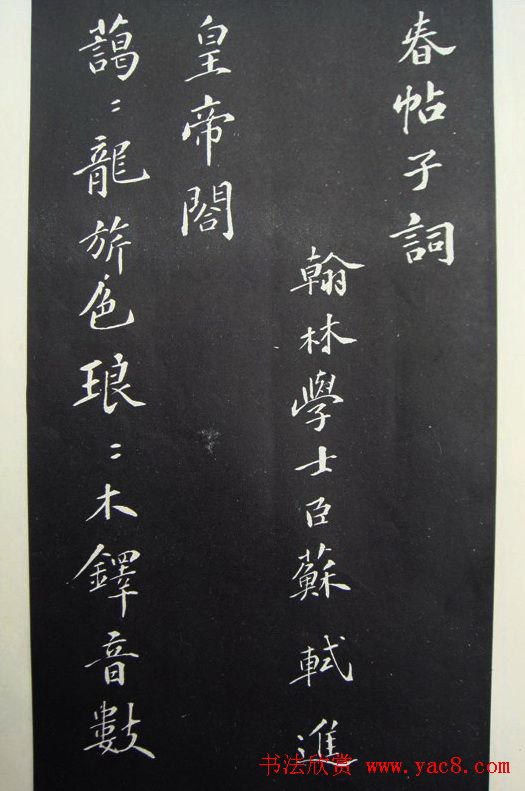 春帖子詞
翰林學士臣蘇軾進
皇帝閤
藹〻龍旂色琅〻木鐸音數
书法欣赏 www.yac8.com